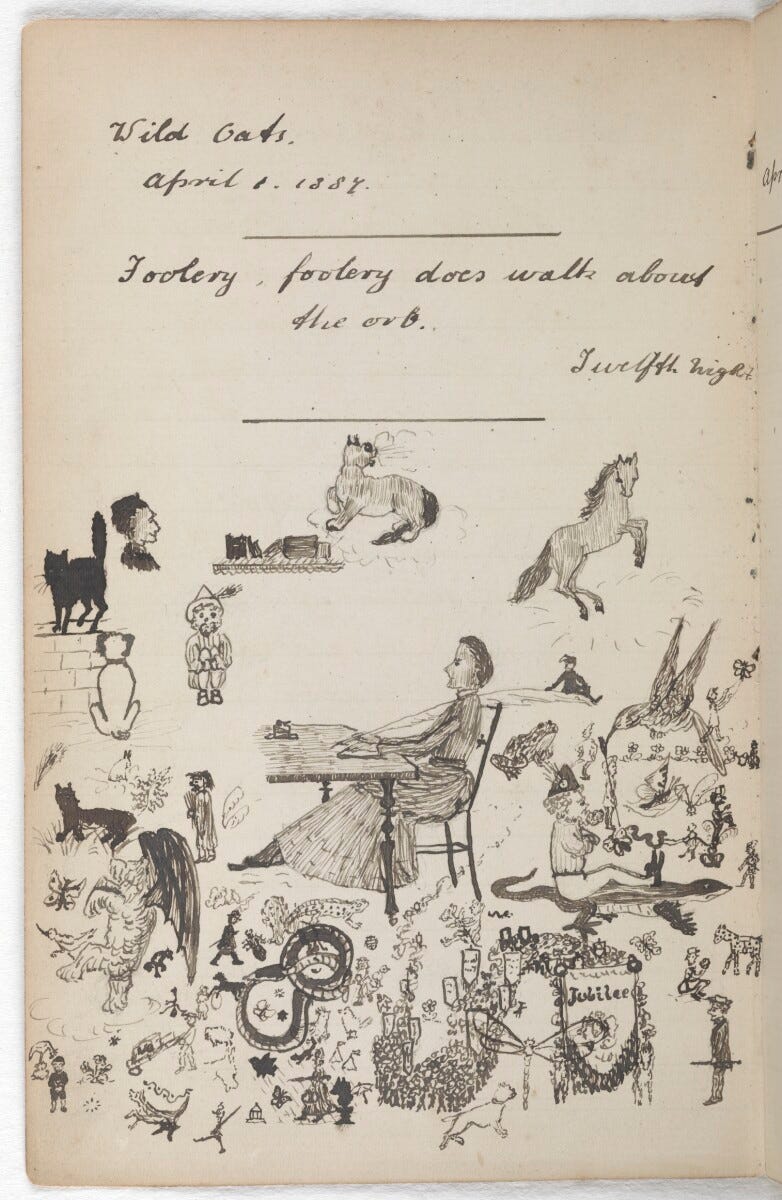 Wild Oats.
April 1. 1887.
Foolery, foolery does walk about
the orb.
Twelfth Night
Jubilee